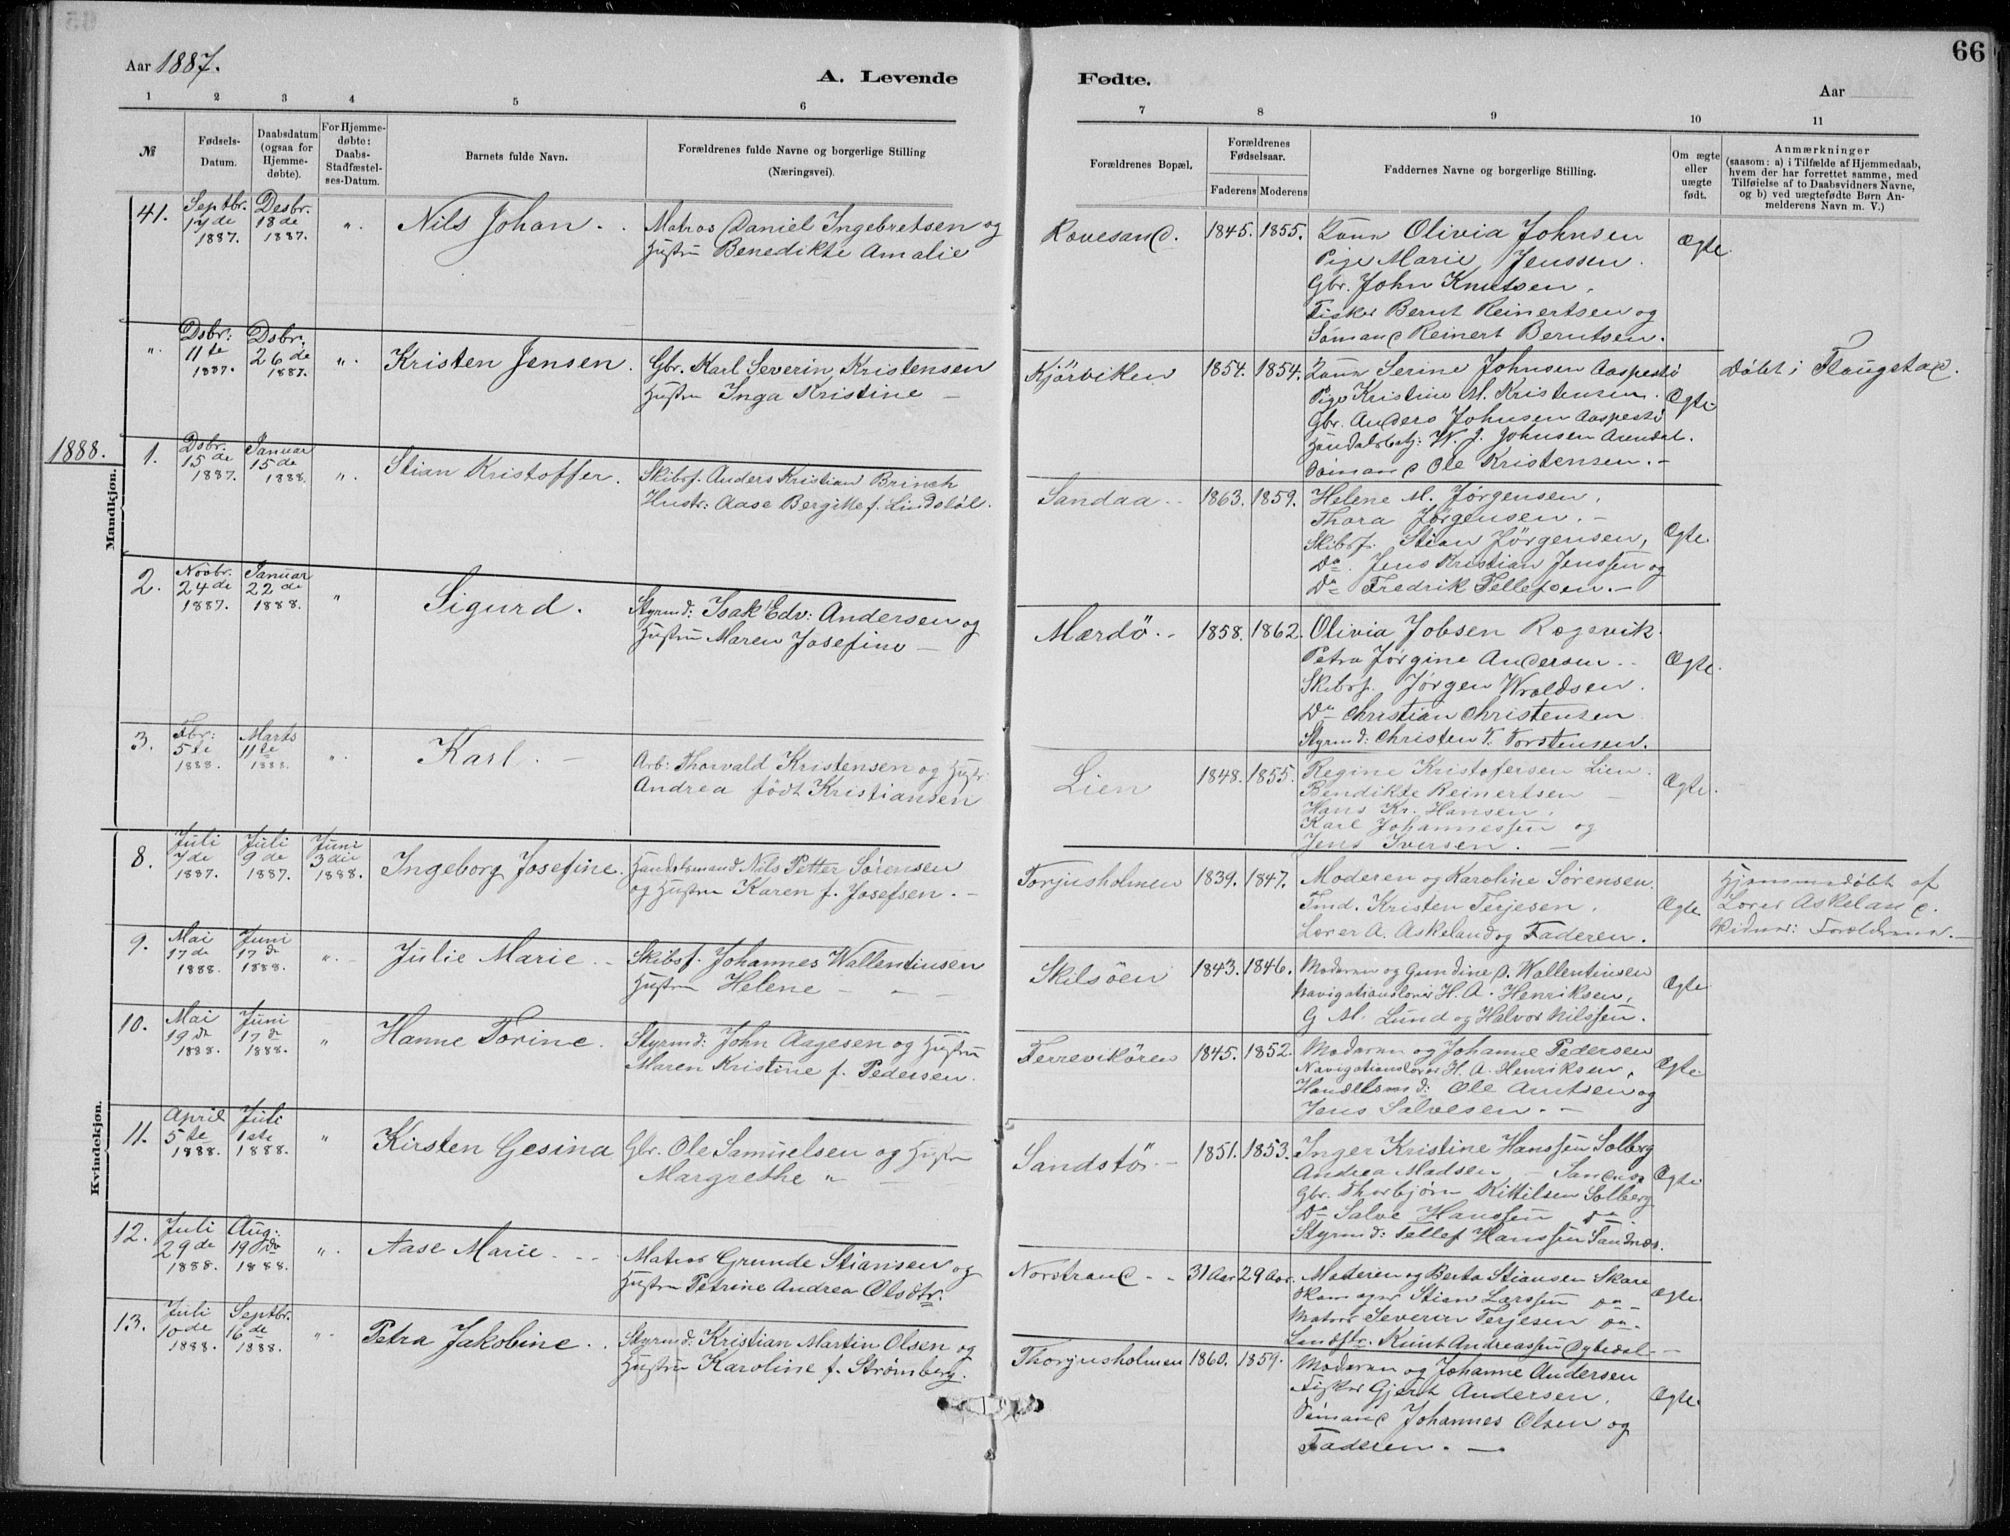 66
Aar 1887.
A. Levende Fødte.
Aar
1 2 3 4 5 6 7 8 9 10 11
№
Fødsels-
Datum.
Daabsdatum
(ogsaa for
Hjemme-
døbte).
For Hjemme-
døbte:
Daabs-
Stadfæstel-
ses-Datum.
Barnets fulde Navn.
Forældrenes fulde Navne og borgerlige Stilling
(Næringsvei).
Forældrenes Bopæl.
Forældrenes
Fødselsaar.
Faderens Moderens
Faddernes Navne og borgerlige Stilling.
Om ægte
eller
uægte
født.
Anmærkninger
(saasom: a) i Tilfælde af Hjemmedaab,
hvem der har forrettet samme, med
Tilføielse af to Daabsvidners Navne,
og b) ved uægtefødte Børn An-
melderens Navn m. V.)
Mandkjøn.
41.
Septbr.
14 de
1887.
Desbr.
18 de
1887.
"
Nils Johan.
Matros Daniel Ingebretsen og
Hustru Benedikte Amalie
Ravesand.
1845. 1855.
Kone Olivia Johnsen
Pige Marie Jenssen.
Gbr. John Knutsen.
Fisker Bernt Reinertsen og
Sömand Reinert Berntsen.
Ægte
"
Dsbr:
11 te
1887.
Dsbr.
26 de
1887.
"
Kristen Jensen.
Gbr. Karl Severin Kristensen
Hustru Inga Kristine –
Kjörviken
1854. 1854.
Kone Serine Johnsen Aaspestö
Pige Kristine M. Kristensen.
Gbr. Anders Johnsen Aaspestö
Handelsbetj: W. J. Johnsen Arendal.
Sömand Ole Kristensen. –
Ægte
Döbt i Flaugstad.
1888.
1.
Dsbr.
15 de
1887.
Januar
15 de
1888.
"
Stian Kristoffer.
Skibsf. Anders Kristian Brinch
Hustr: Aase Bergitte f. Lindstöl.
Sandaa –
1863. 1859.
Helene M. Jørgensen.
Thora Jørgensen. –
Skibsf. Stian Jörgensen,
Do. Jens Kristian Jenssen og
Do Fredrik Tellefsen. –
Ægte
2.
Novbr.
24 de
1887.
Januar
22 de
1888.
"
Sigurd.
Styrmd: Isak Edv: Andersen og
Hustru Maren Josefine –
Mærdö. –
1858. 1862.
Olivia Jobsen Rægevik.
Petra Jørgine Andersen. –
Skibsf. Jørgen Wroldsen.
Do Christian Christensen
Styrmd: Christen T. Torstensen.
Ægte.
3.
Fbr:
5 te
1888.
Marts
11 te
1888.
"
Karl. –
Arb: Thorvald Kristensen og Hustr:
Andrea født Kristiansen
Lien
1848. 1855.
Regine Kristofersen Lien.
Bendikte Reinertsen –
Hans Kr. Hansen.
Karl Johannessen og
Jens Iversen. –
Ægte.
Kvindekjøn.
8.
Juli
7 de
1887.
Juli
9 de
1887.
Juni
3 die
1888.
Ingeborg Josefine.
Handelsmand Nils Petter Sørensen
og Hustru Karen f. Josefsen. –
Torjusholmen
1839. 1847.
Moderen og Karoline Sørensen.
Tmd. Kristen Terjesen.
Lærer A. Askeland og Faderen.
Ægte
Hjemmedøbt af
Lærer Askeland.
Vidner: Forældrene. –
9.
Mai
17 de
1888.
Juni
17 d
1888.
"
Julie Marie. –
Skibsf. Johannes Wallentinsen
Hustru Helene – –
Skilsöen
1843. 1846.
Moderen og Gundine A. Wallentinsen
Navigationslærer H. A. Henriksen,
G M. Lund og Halvor Nilssen.
Ægte
10.
Mai
19 d
1888.
Juni
17 d
1888.
"
Hanne Torine.
Styrmd: John Aagesen og Hustru
Maren Kristine f. Pedersen.
Terrevikören
1845. 1852.
Moderen og Johanne Pedersen
Navigationslærer H. A. Henriksen,
Handelsmd: Ole Arntsen og
Jens Salvesen. –
Ægte.
11.
April
5 te
1888.
Juli
1 ste
1888.
"
Kirsten Gesina
Gbr. Ole Samuelsen og Hustru
Margrethe "
Sandstö –
1851. 1853.
Inger Kristine Hanssen Solberg
Andrea Madsen – Sandnes
Gbr. Thorbjørn Kittilsen Solberg
Do Salve Hanssen Do
Styrmd: Tellef Hanssen Sandnes.
Ægte
12.
Juli
29 de
1888.
Aug:
19 de
1888.
"
Aase Marie – –
Matros Grunde Stiansen og
Hustru Petrine Andrea Olsdtr.
Norstrand –
31 Aar 29 Aar.
Moderen og Berta Stiansen Skare
Skomager Stian Larssen Do –
Matros Severin Terjesen Do –
Landstr. Knut Andreassen Dybedal –
Ægte.
13.
Juli
10 de
1888.
Septbr.
16 de
1888.
"
Petra Jakobine.
Styrmd: Kristian Martin Olsen og
Hustru Karoline f. Strömberg.
Thorjusholmen
1860. 1859.
Moderen og Johanne Andersen
Fisker Gjert Andersen.
Sömand Johannes Olsen og
Faderen. –
Ægte